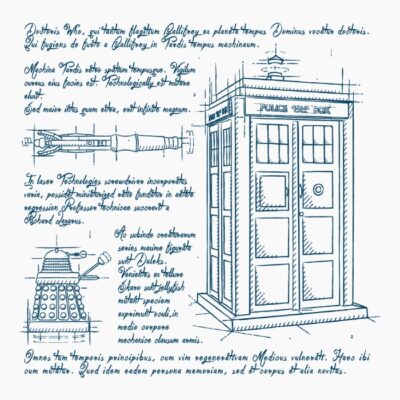 Doctoris Who, qui tantum flagitium Gallifrey ex planeta tempus Dominus vocatur doctoris.
Qui fugiens de furto a Gallifrey in Tardis tempus machinam.
Machina Tardis retro spatium tempusque. Vigilum
currus eius facies est. Technologically est mutare
elunt.
Sed maior intus quam extra, erit infinite magnum.
POLICE BOX
In laser Technologies screwdriver incorporatis
varia, possidet miniaturized retro funditur in aetate
regression Professor technicae succurrit a
Richard Lazarus.
Ac subinde creaturarum
series maxime figurata
sunt Daleks.
Varietates ex tellure
Skaro sunt jellyfish
mutant speciem
exprimunt eculi, in
medio corpore
mechanica clausum armis.
Omnes tum temporis principibus, cum vim regenerativam Medicus vulneratt. Haec ibi
cum mutatur. Quod idem eadem persona memoriam, sed et corpus et alia novitas.